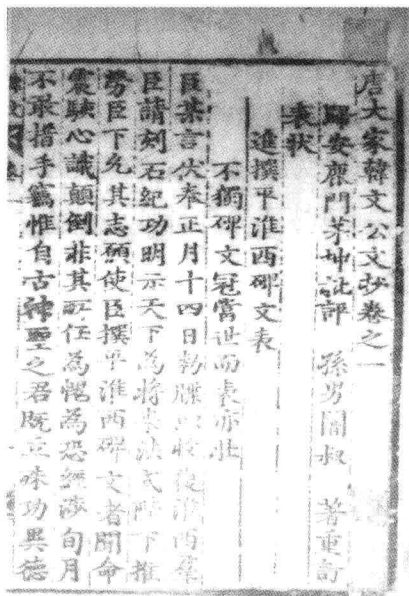 唐大家韓文公文抄卷之一
歸安鹿門茅坤批評 孫男闇叔 著重訂
表狀
進撰平淮西碑文表
不獨碑文冠當世而表亦壯
臣某言伏奉正月十四日勑牒以收復淮西羣
臣請刻石紀功明示天下為將來法式陛下推
勞臣下允其志願使臣撰平淮西碑文者聞命
震駭心識顛倒非其所任為愧為恐經涉旬月
不敢措手竊惟自古神聖之君既立殊功異德